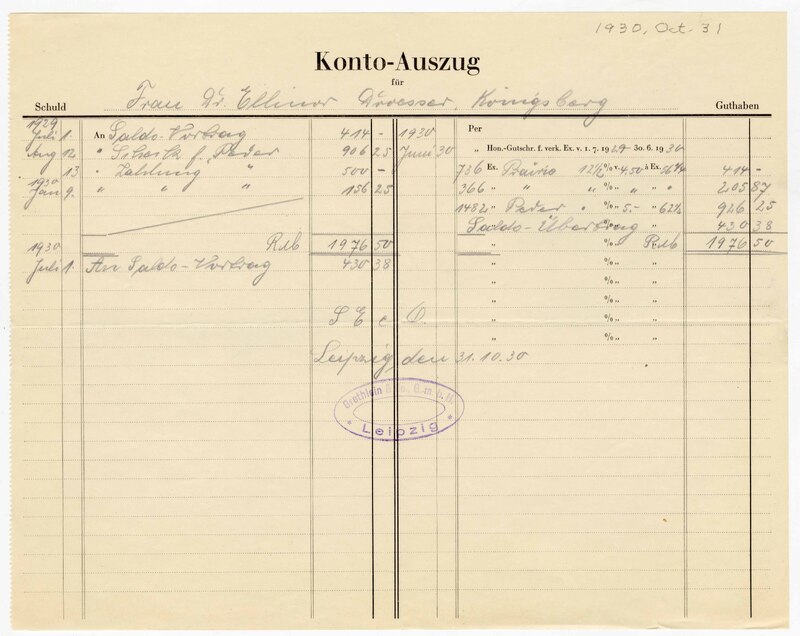 1930, Oct. 31
Konto-Auszug
für
Schuld Frau Dr. Ellinor Droesser, Königsberg Guthaben
1929
Juli 1. An Saldo-Vortrag 414 -
Aug 12 " Scheck f. Peder 906 25
" 13 " Zahlung " 500 -
1930
Jan 9. " " " 156 25
Rmb 1976 50
1930
Juli 1. An Saldo-Vortrag 430 38
1930 Per
Juni 30 " Hon.-Gutschr. f. verk. Ex. v. 1. 7. 1929 30. 6. 1930
736 Ex. 12½ % v. 4,50 à Ex. 56¼ 414 -
366 " " " % " " " 205 87
1482 " Peder " % " 5.- " 62½ 926 25
Saldo-Übertrag 430 38
" % " Rmb " 1976 50
" % " "
" % " "
" % " "
" % " "
" % " "
S. E. e. O.
Leipzig, den 31.10.30
G.m.b.H.
* Leipzig *